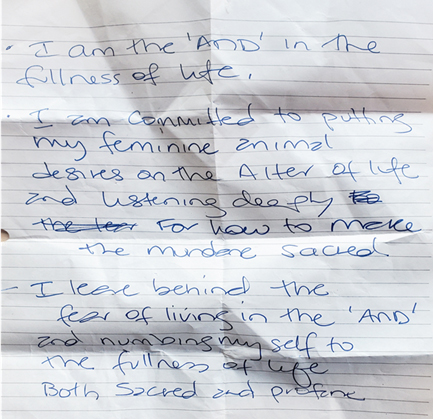 · I am the 'AND' in the
fullness of life.
· I am committed to putting
my feminine animal
desires on the Alter of life
and listening deeply
For how to make
the mundane sacred.
- I leave behind the
fear of living in the 'AND'
and numbing my self to
the fullness of life
Both Sacred and profane